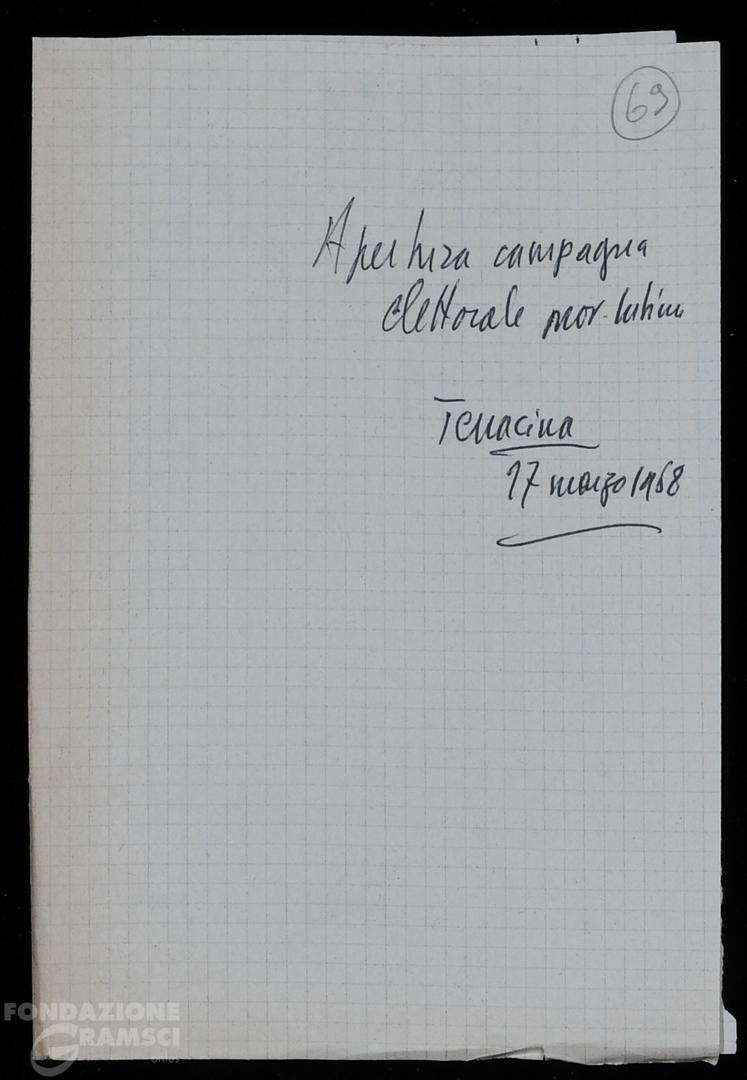 69
Apertura campagna
elettorale prov. Latina
Terracina
17 marzo 1968
FONDAZIONE
GRAMSCI
onlus